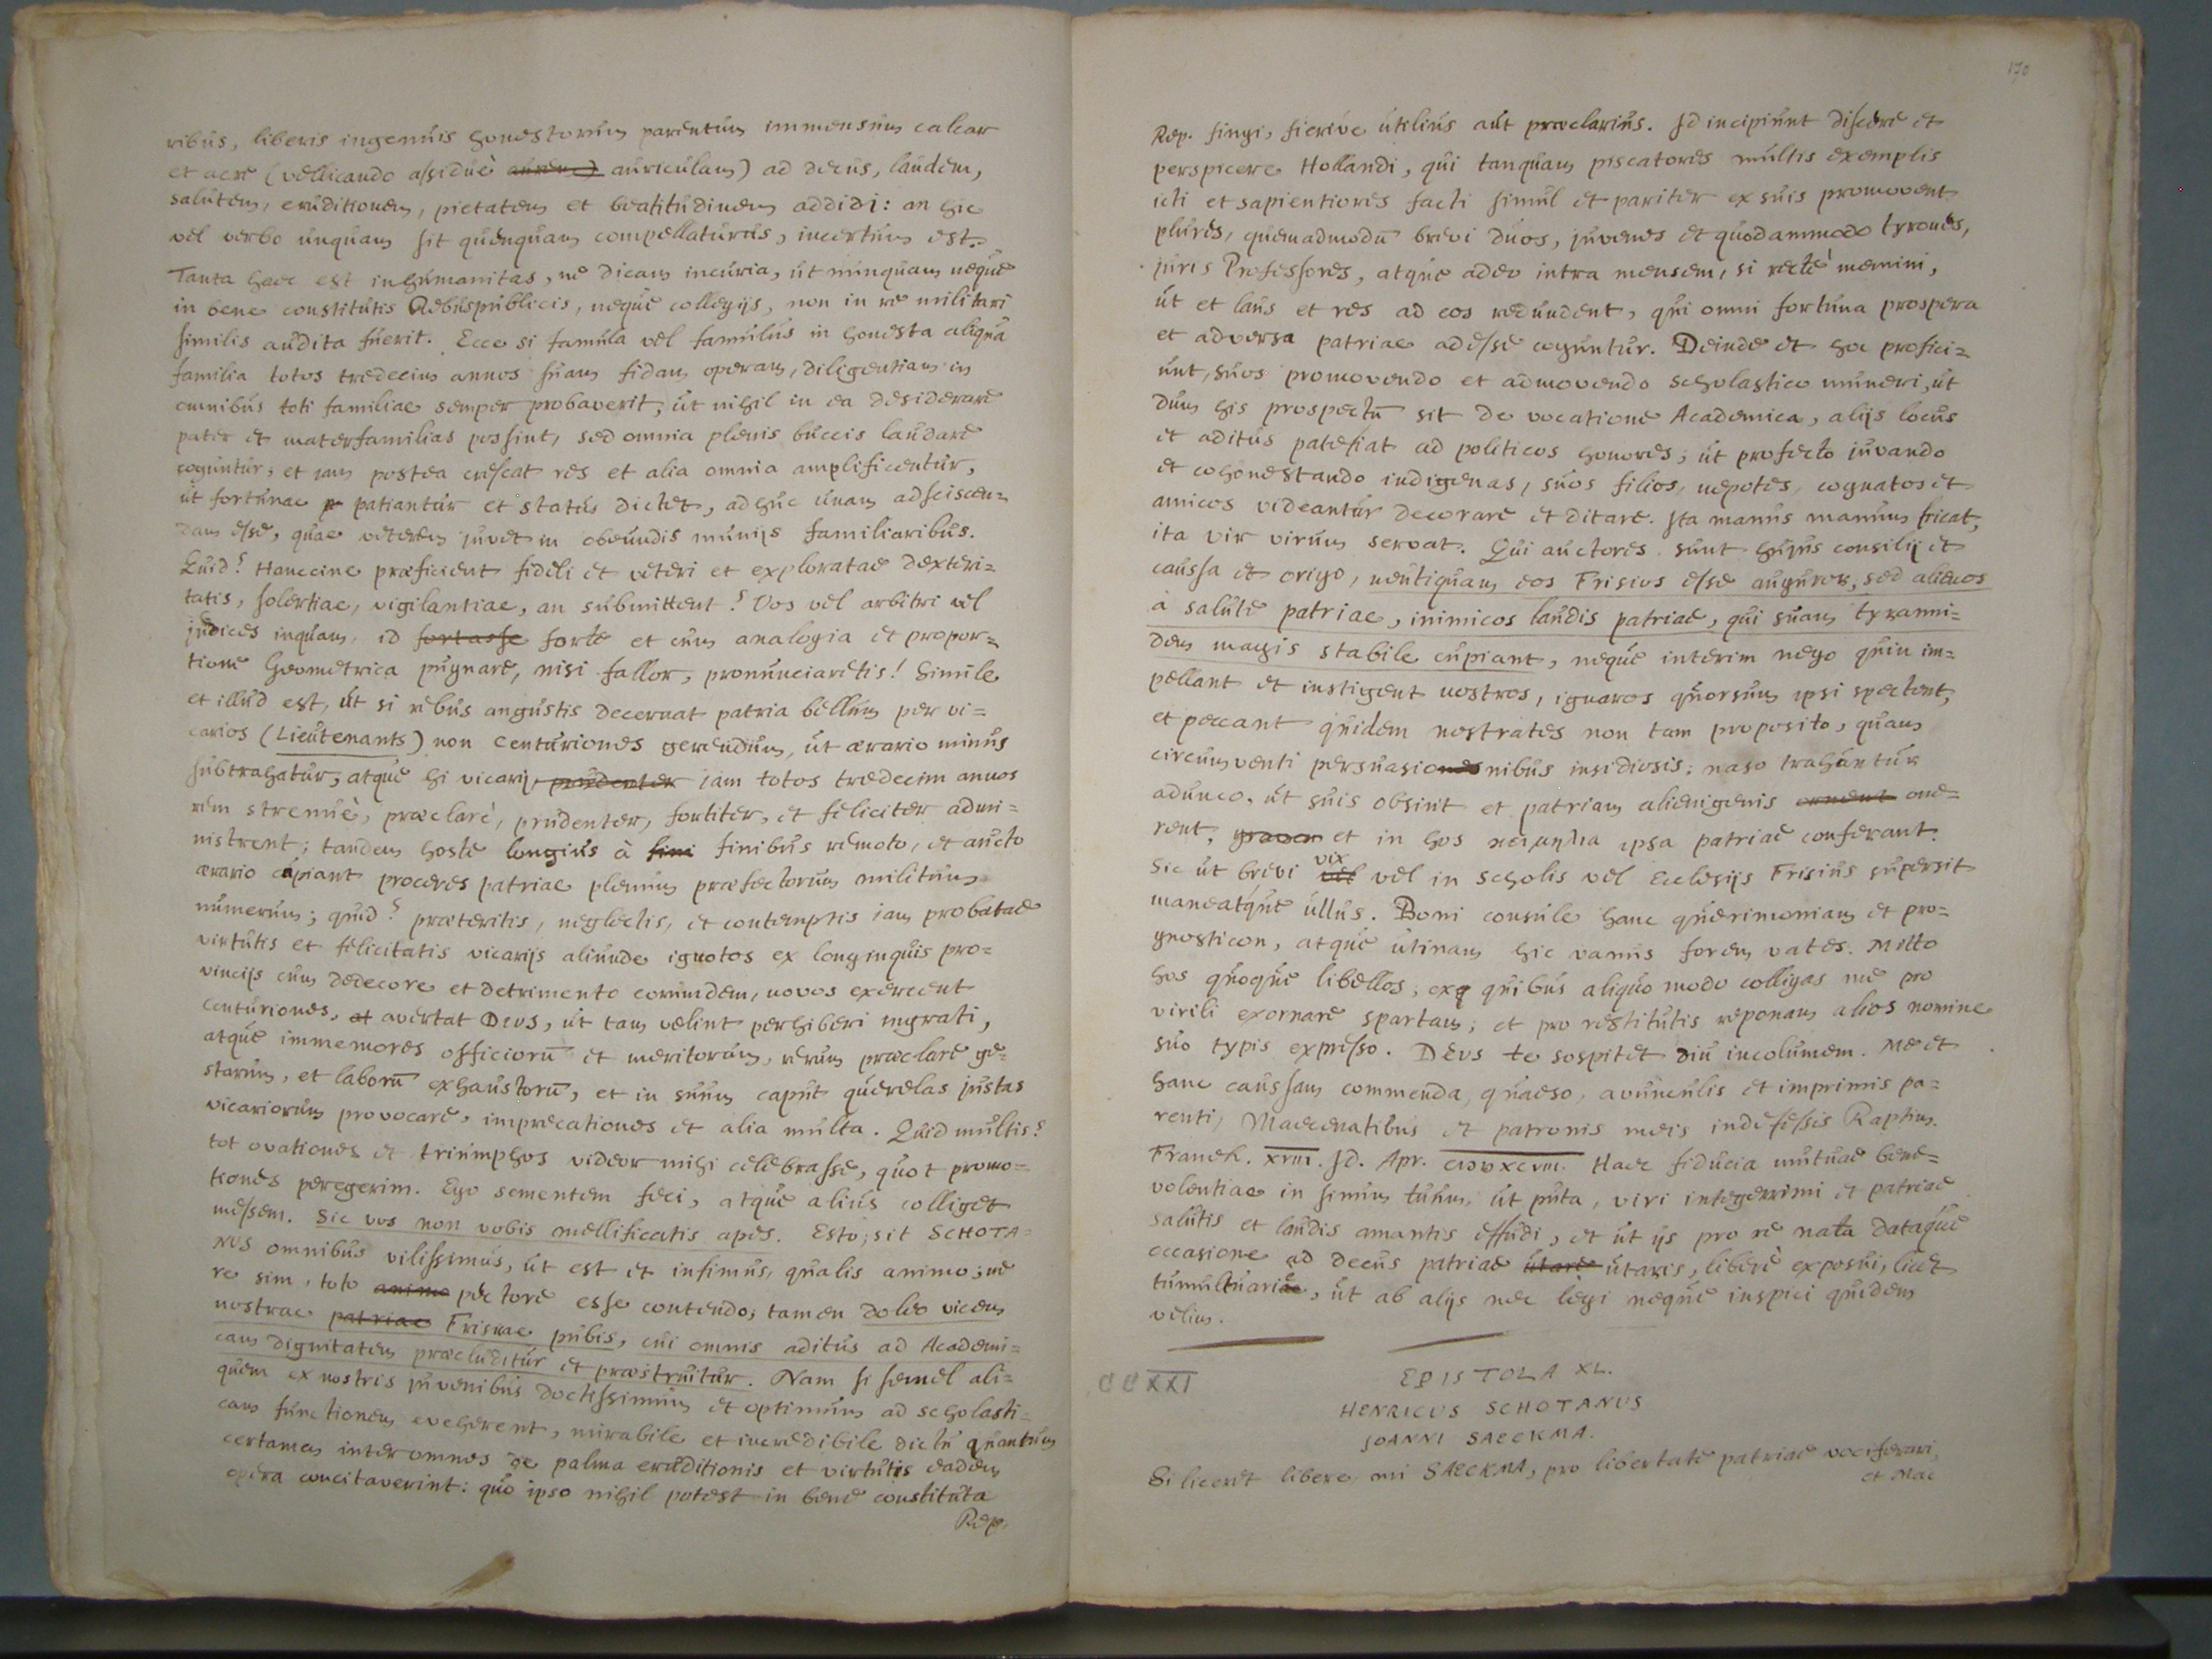 ribus, liberis ingenuis honestorum parentum immensum calcar
et acre (vellicando assiduè aurem) auriculam) ad decus, laudem,
salutem, eruditionem, pietatem et beatitudinem addidi: an hic
vel verbo unquam sit quenquam compellaturus, incertum est.
Tanta haec est inhumanitas, ne dicam incuria, ut nunquam neque
in bene constitutis Rebuspublicis, neque collegijs, non in re militari
similis audita fuerit. Ecce si famula vel famulus in honesta aliqua
familia totos tredecim annos suam fidam operam, diligentiam in
omnibus toti familiae semper probaverit, ut nihil in ea desiderare
pater et materfamilias possint, sed omnia plenis buccis laudare
coguntur; et jam postea crescat res et alia omnia amplificentur,
ut fortunae p patiantur et status dictet, adhuc unam adsciscen=
dam esse, quae veterem juvet in obeundis munijs familiaribus.
Quid? Hanccine praeficient fideli et veteri et exploratae dexteri=
tatis, solertiae, vigilantiae, an submittent? Vos vel arbitri vel
judices inquam, id fortasse forte et cum analogia et propor=
tione Geometrica pugnare, nisi fallor, pronunciaretis! Simile
et illud est, ut si rebus angustis decernat patria bellum per vi=
carios (Lieutenants) non Centuriones gerendum, ut aerario minus
subtrahatur, atque hi vicarij, prudenter jam totos tredecim annos
rem strenuè, praeclarè, prudenter, fortiter, et feliciter admi=
nistrent; tandem hoste longius à fini finibus remoto, et aucto
aerario cupiant proceres patriae plenum praefectorum militum
numerum; quid? praeteritis, neglectis, et contemptis jam probatae
virtutis et felicitatis vicarijs aliunde ignotos ex longinquis pro=
vincijs cum dedecore et detrimento eorumdem, novos exercent
Centuriones, at avertat Deus, ut tam velint perhiberi ingrati,
atque immemores officiorū et meritorum, rerum praeclare ge=
starum, et laborū exhaustorū, et in suum caput querelas justas
vicariorum provocare, imprecationes et alia multa. Quid multis?
tot ovationes et triumphos videor mihi celebrasse, quot promo=
tiones peregerim. Ego sementem feci, atque alius colliget
messem. Sic vos non vobis mellificatis apes. Esto; sit SCHOTA=
NUS omnibus vilissimus, ut est et infimus, qualis animo; ne
re sim, toto animo pectore esse contendo; tamen doleo vicem
nostrae patriae Frisiae pubis, cui omnis aditus ad Academi=
cam dignitatem praecluditur et praestruitur. Nam si semel ali=
quem ex nostris juvenibus doctissimum et optimum ad scholasti=
cam functionem eveherent, mirabile et incredibile dictu quantum
certamen inter omnes de palma eruditionis et virtutis eadem
opera concitaverint: quo ipso nihil potest in bene constituta
Rep.
170
Rep. fingi, fierive utilius aut praeclarius. Id incipiunt discere et
perspicere Hollandi, qui tanquam piscatores multis exemplis
icti et sapientiores facti simul et pariter ex suis promovent
plures, quemadmodū brevi duos, juvenes et quodammodo tyrones,
juris Professores, atque adeo intra mensem, si rectè memini,
ut et laus et res ad eos redundent, qui omni fortuna prospera
et adversa patriae adesse coguntur. Deinde et hoc profici=
unt, suos promovendo et admovendo scholastico muneri, ut
dum his prospectū sit de vocatione Academica, alijs locus
et aditus patefiat ad politicos honores; ut profecto juvando
et cohonestando indigenas, suos filios, nepotes, cognatos et
amicos videantur decorare et ditare. Ita manus manum fricat,
ita vir virum servat. Qui auctores sunt hujus consilij et
caussa et origo, neutiquam eos Frisios esse auguror, sed alienos
à salute patriae, inimicos laudis patriae, qui suam tyranni=
dem magis stabile cupiant, neque interim nego quin im=
pellant et instigent nostros, ignaros quorsum ipsi spectent,
et peccant quidem nostrates non tam proposito, quam
circumventi persuasiones nibus insidiosis; naso trahuntur
adunco, ut suis obsint et patriam alienigenis ornent one=
rent, graven et in hos κειμήλια ipsa patriae conferant.
Sic ut brevi vel vix vel in scholis vel Ecclesijs Frisius supersit
maneatque ullus. Boni consule hanc querimoniam et pro=
gnosticon, atque utinam hic vanus forem vates. Mitto
hos quoque libellos, ex quibus aliquo modo colligas me pro
virili exornare spartam; et pro restitutis reponam alios nomine
suo typis expresso. Deus te sospitet diu incolumem. Me et
hanc caussam commenda, quaeso, avunculis et imprimis pa=
renti, Maecenatibus et patronis meis indefessis Raptim.
Franek. XVIII. Id. Apr. CIƆIƆXCVIII. Haec fiducia mutuae bene=
volentiae in sinum tuum, ut puta, viri integerrimi et patriae
salutis et laudis amantis effudi, et ut ijs pro re nata dataque
occasione ad decus patriae utare utaris, liberè exposui, licet
tumultuariè, ut ab alijs nec legi neque inspici quidem
velim.
CCXXI
EPISTOLA XL.
HENRICUS SCHOTANUS
JOANNI SAECKMA.
Si liceret libere, mi SAECKMA, pro libertate patriae vociferari,
et Mae